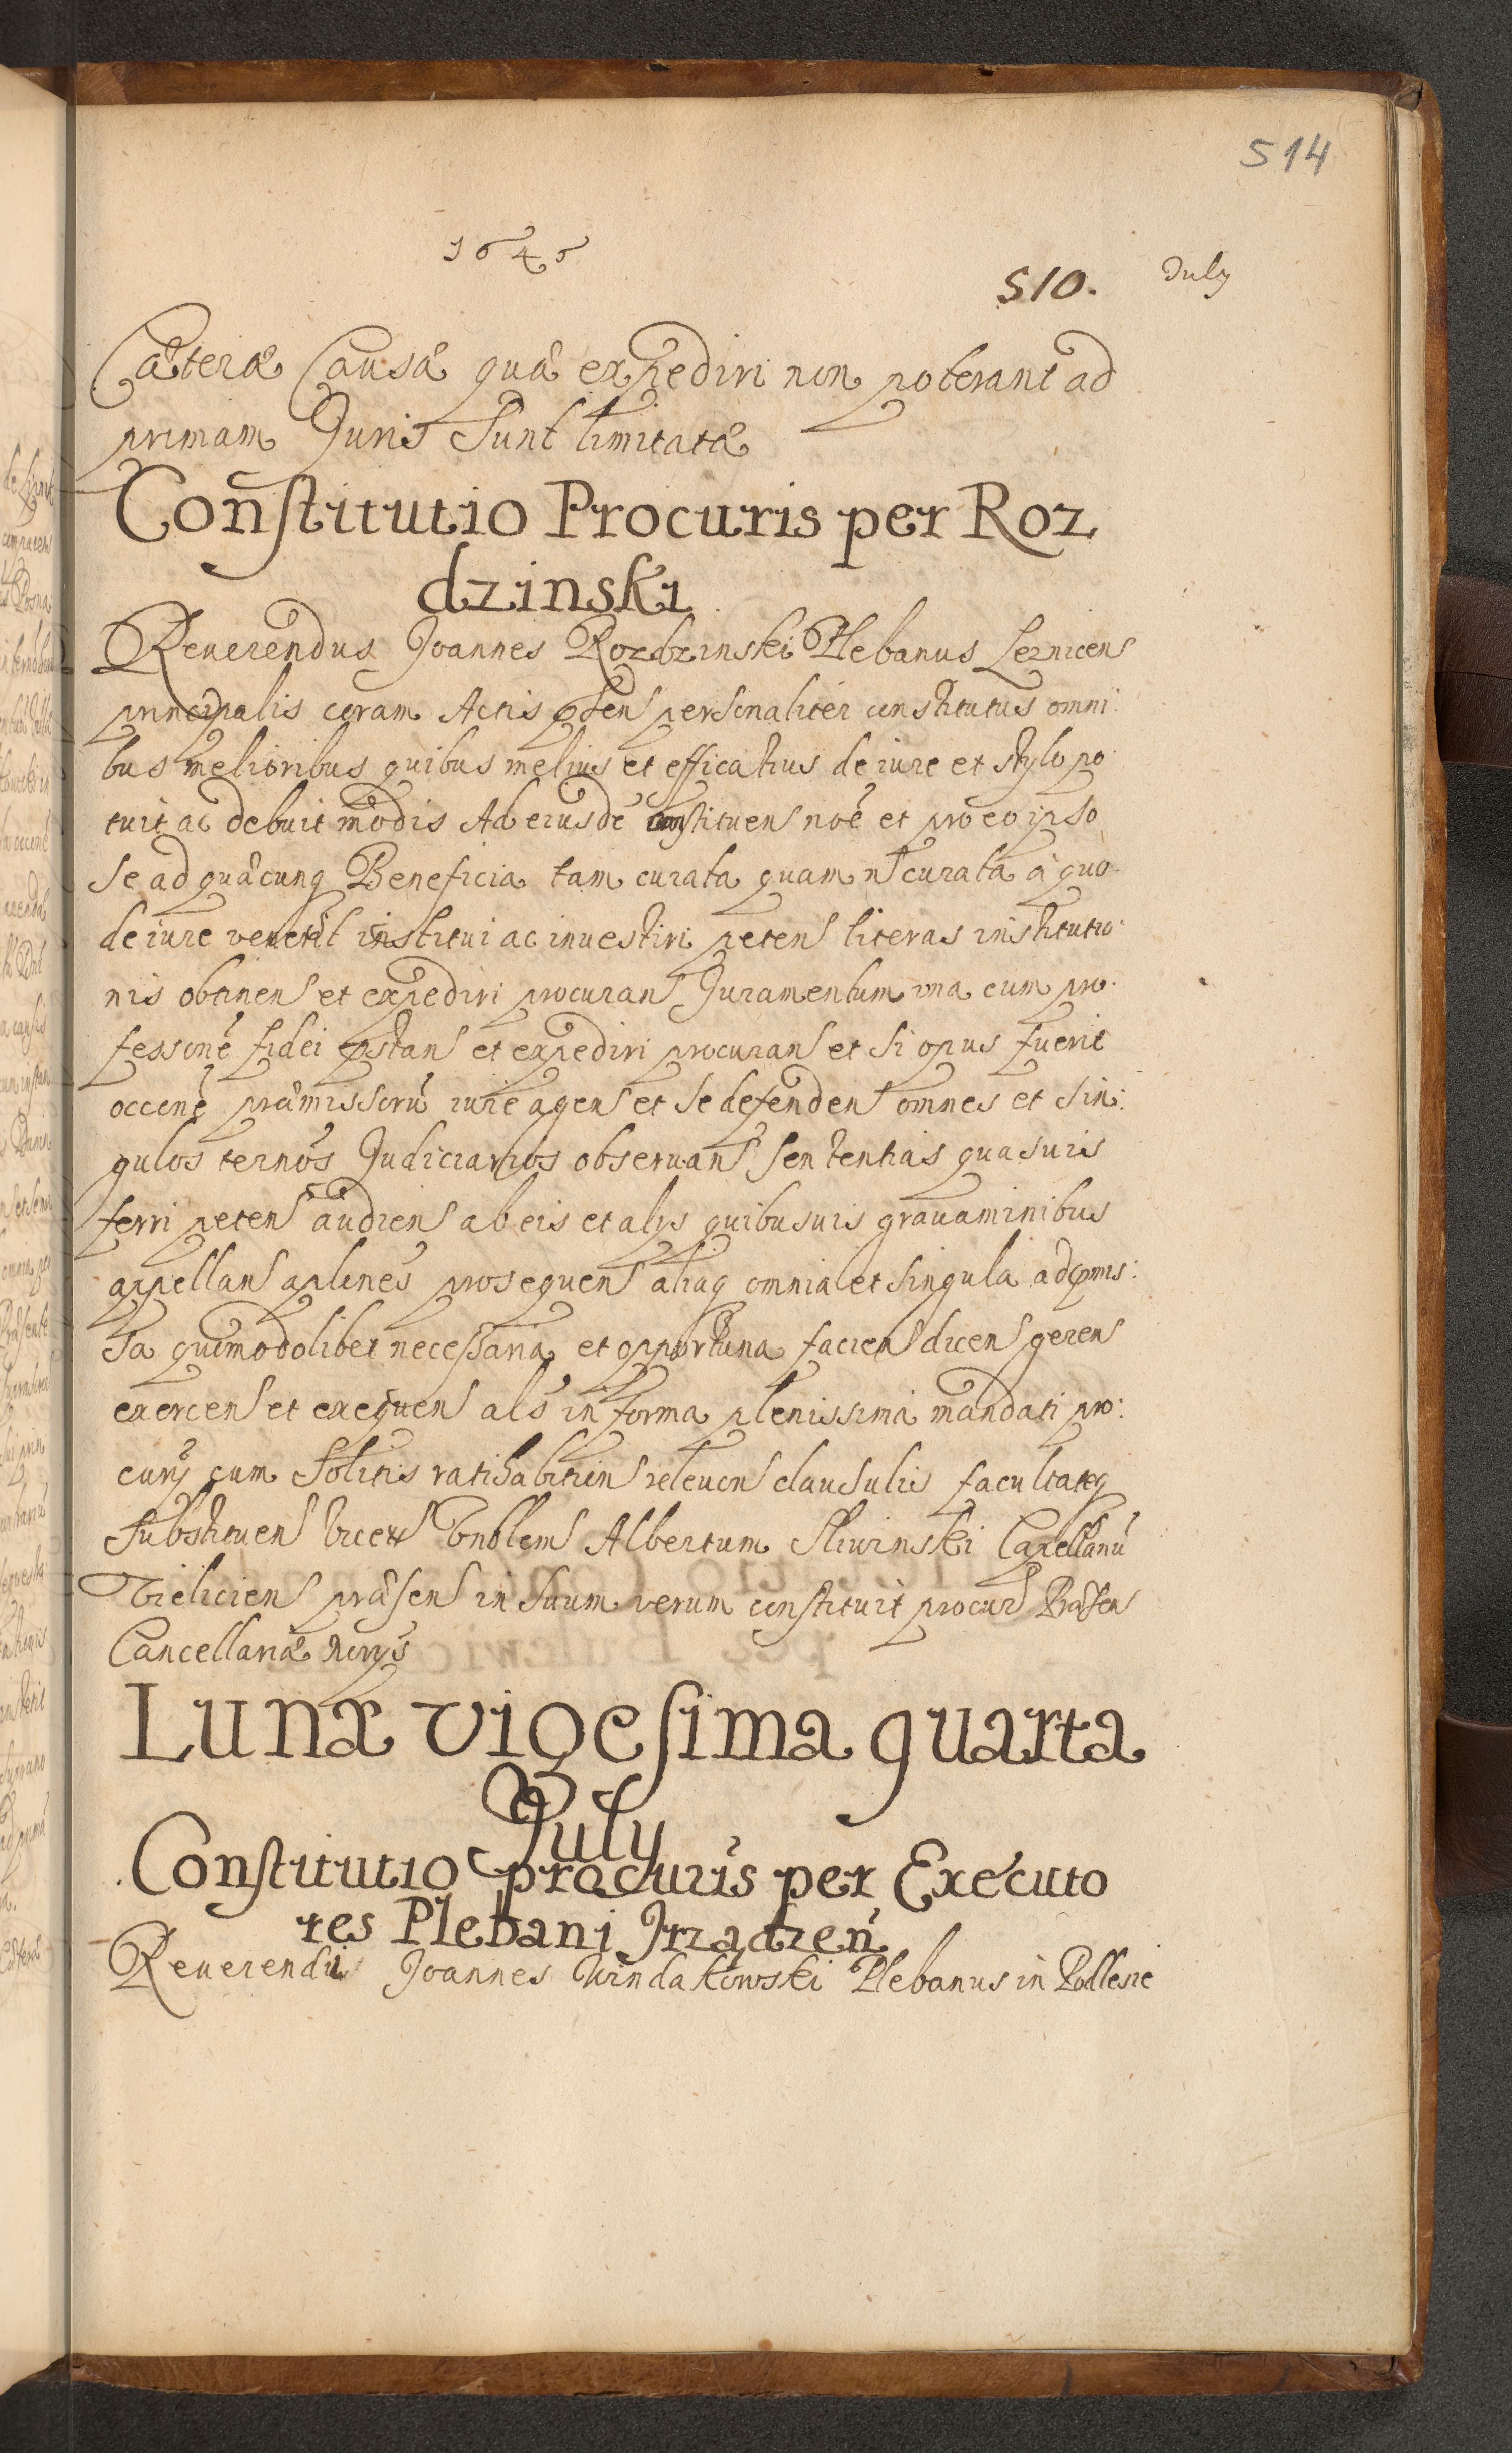 514
1645
510. July
Cæteræ Causæ quæ expediri non poterant ad
primam Juris sunt limitatæ
Constitutio Procuris per Roz
dzinski
Reuerendus Joannes Rozdzinski Plebanus Leznicens
principalis coram Actis personaliter constitutus omni:
bus melioribus quibus melius et efficatius de iure et stylo po
tuit ac debuit modis Ad eiusdē constituens noē et pro eo ipso
se ad quæcunq Beneficia tam curata quam n curata à quo
de iure venerit institui ac inuestiri petens literas institutio:
nis obtinens et expediri procurans Juramentum una cum pro:
fessionē fidei pstans et expediri procurans et si opus fuerit
occonē præmissorū iure agens et se defendens omnes et sin:
gulos ternos Judiciarios obseruans sententias quasuis
ferri petens audiens ab eis et alys quibusuis grauaminibus
appellans aplnēs prosequens aliaq omnia et singula ad pmis:
sa quomodolibet necessaria et opportuna faciens dicens gerens
exercens et exequens als in forma plenissima mandati pro:
cury cum solitis ratihabitiōn releuōn clausulis facultateq
substituens Albertum Sliwinski Capellanū
Vieliciens præsens in suum verum constituit procur Præsen
Cancellariæ Norys
Lunæ vigesima quarta
July
Constitutio procuris per Executo
res Plebani Irządzen
Reuerendi Joannes Windakowski Plebanus in Podlesie